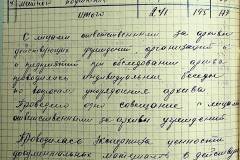 итого 241 195 177
С лицами ответственными за архивы
действующих учреждений, организаций и
предприятий при обследовании архива
проводились индивидуальные беседы
по вопросам упорядочения архива
Проведено одно совещание с лицами
ответственными за архивы учреждений
Проводилась экспертиза ценности
документальных материалов в